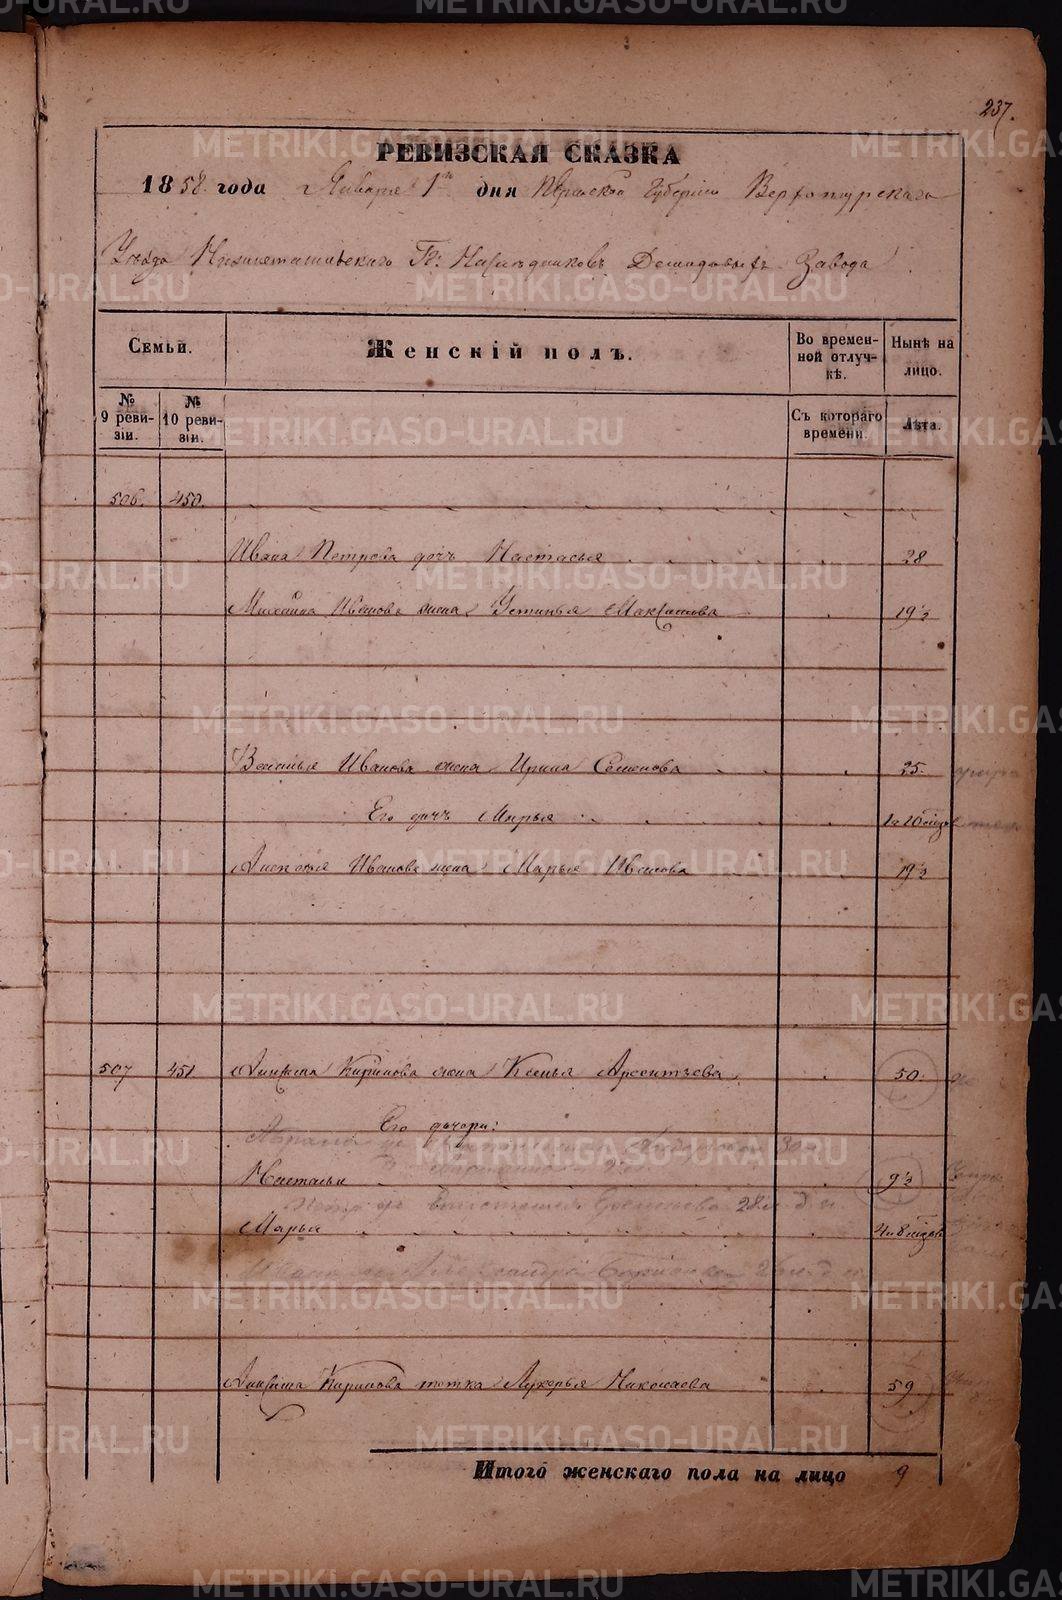 237.
РЕВИЗСКАЯ СКАЗКА
1858 года Января 1го дня Пермской Губернiи Верхотурскаго
Уѣзда Нижнетагильскаго Гг: Наслѣдниковъ Демидовыхъ Завода
Семьи.
Женскiй полъ.
Во времен-
ной отлуч-
кѣ.
Нынѣ на
лицо.
№
9 реви-
зiи.
№
10 реви-
зiи.
Съ котораго
времени.
Лѣта.
506. 450.
Ивана Петрова дочь Настасья 28
Михайла Иванова жена Устинья Максимова 19½
Василья Иванова жена Ирина Семенова 25.
Его дочь Марья
Алексея Иванова жена Марья Иванова 19½
507 451 Кирилова жена Ксенья Арсентьева 50.
Его дочери:
Настасья 9½
Марья
Кирилова тетка Лукерья Николаева 59
Итого женскаго пола на лицо 9
METRIKI.GASO-URAL.RU